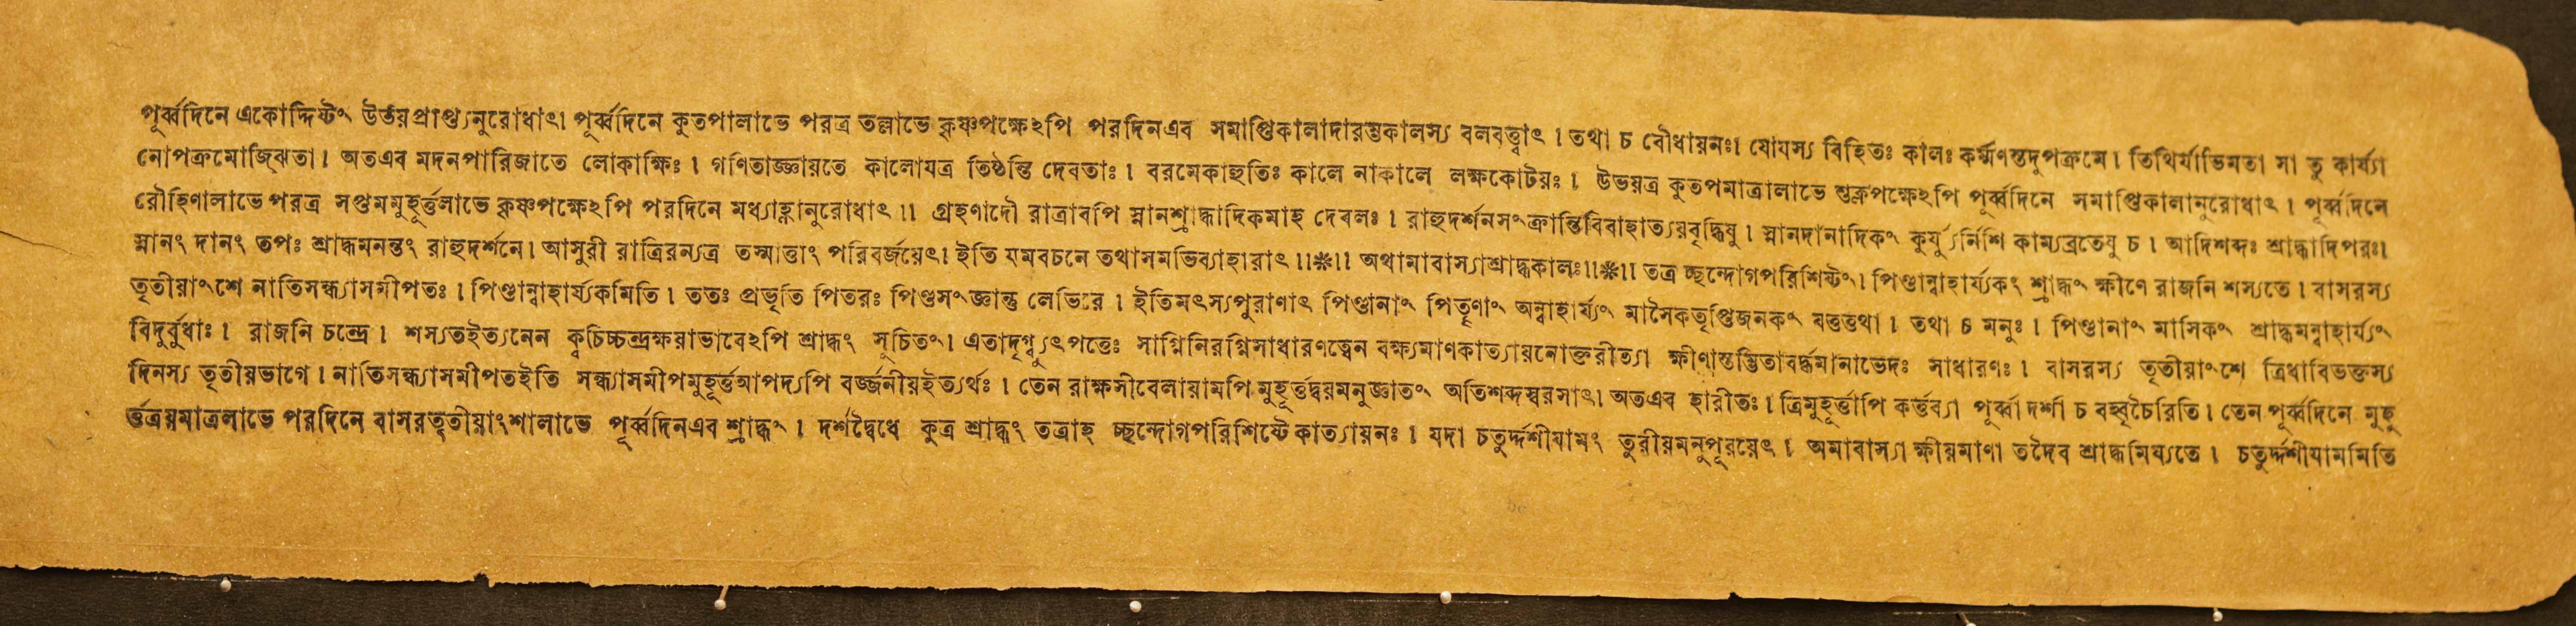 পূর্ব্বদিনে একোদ্দিষ্টং উর্ভয়প্রাপ্ত্যনুরোধাৎ। পূর্ব্বদিনে কুতপালাভে পরত্র তল্লাভে কৃষ্ণপক্ষেঽপি পরদিনএব সমাপ্তিকালাদারম্ভকালস্য বলবত্ত্বাৎ । তথা চ বৌধায়নঃ। যোযস্য বিহিতঃ কালঃ কর্ম্মণস্তদুপক্রমে। তিথির্যাভিমতা সা তু কার্য্যা
নোপক্রমোজ্ঝিতা। অতএব মদনপারিজাতে লোকাক্ষিঃ। গণিতাজ্জ্ঞায়তে কালোযত্র তিষ্ঠন্তি দেবতাঃ। বরমেকাহুতিঃ কালে নাকালে লক্ষকোটয়ঃ। উভয়ত্র কুতপমাত্রালাভে শুক্লপক্ষেঽপি পূর্ব্বদিনে সমাপ্তিকালানুরোধাৎ। পূর্ব্বদিনে
রৌহিণালাভে পরত্র সপ্তমমুহূর্ত্তলাভে কৃষ্ণপক্ষেঽপি পরদিনে মধ্যাহ্ণানুরোধাৎ ।। গ্রহণাদৌ রাত্রাবপি স্নানশ্রাদ্ধাদিকমাহ দেবলঃ। রাহুদর্শনসংক্রান্তিবিবাহাত্যয়বৃদ্ধিষু। স্নানদানাদিকং কুর্যুর্নিশি কাম্যব্রতেষু চ। আদিশব্দঃ শ্রাদ্ধাদিপরঃ।
স্নানং দানং তপঃ শ্রাদ্ধমনন্তং রাহুদর্শনে। আসুরী রাত্রিরন্যত্র তস্মাত্তাং পরিবর্জয়েৎ। ইতি যমবচনে তথাসমভিব্যাহারাৎ ।।❋।। অথামাবাস্যাশ্রাদ্ধকালঃ।।❋।। তত্র চ্ছন্দোগপরিশিষ্টং। পিণ্ডান্বাহার্য্যকং শ্রাদ্ধং ক্ষীণে রাজনি শস্যতে। বাসরস্য
তৃতীয়াংশে নাতিসন্ধ্যাসমীপতঃ। পিণ্ডান্বাহার্য্যকমিতি। ততঃ প্রভৃতি পিতরঃ পিণ্ডসংজ্ঞান্তু লেভিরে। ইতিমৎস্যপুরাণাৎ পিণ্ডানাং পিতৄণাং অন্বাহার্য্যং মাসৈকতৃপ্তিজনকং যত্তত্তথা। তথা চ মনুঃ। পিণ্ডানাং মাসিকং শ্রাদ্ধমন্বাহার্য্যং
বিদুর্ব্বুধাঃ। রাজনি চন্দ্রে। শস্যতইত্যনেন ক্বচিচ্চন্দ্রক্ষয়াভাবেঽপি শ্রাদ্ধং সূচিতং। এতাদৃগ্ব্যুৎপত্তেঃ সাগ্নিনিরগ্নিসাধারণত্বেন বক্ষ্যমাণকাত্যায়নোক্তরীত্যা ক্ষীণাস্তম্ভিতাবর্দ্ধমানাভেদঃ সাধারণঃ। বাসরস্য তৃতীয়াংশে ত্রিধাবিভক্তস্য
দিনস্য তৃতীয়ভাগে। নাতিসন্ধ্যাসমীপতইতি সন্ধ্যাসমীপমুহূর্ত্তআপদ্যপি বর্জ্জনীয়ইত্যর্থঃ। তেন রাক্ষসীবেলায়ামপি মুহূর্ত্তদ্বয়মনুজ্ঞাতং অতিশব্দস্বরসাৎ। অতএব হারীতঃ। ত্রিমুহূর্ত্তাপি কর্ত্তব্যা পূর্ব্বা দর্শা চ বহ্বৃচৈরিতি। তেন পূর্ব্বদিনে মুহূ
র্ত্তত্রয়মাত্রলাভে পরদিনে বাসরতৃতীয়াংশালাভে পূর্ব্বদিনএব শ্রাদ্ধং। দর্শদ্বৈধে কুত্র শ্রাদ্ধং তত্রাহ চ্ছন্দোগপরিশিষ্টে কাত্যায়নঃ। যদা চতুর্দ্দশীযামং তুরীয়মনুপূরয়েৎ। অমাবাস্যা ক্ষীয়মাণা তদৈব শ্রাদ্ধমিষ্যতে। চতুর্দ্দশীযামমিতি